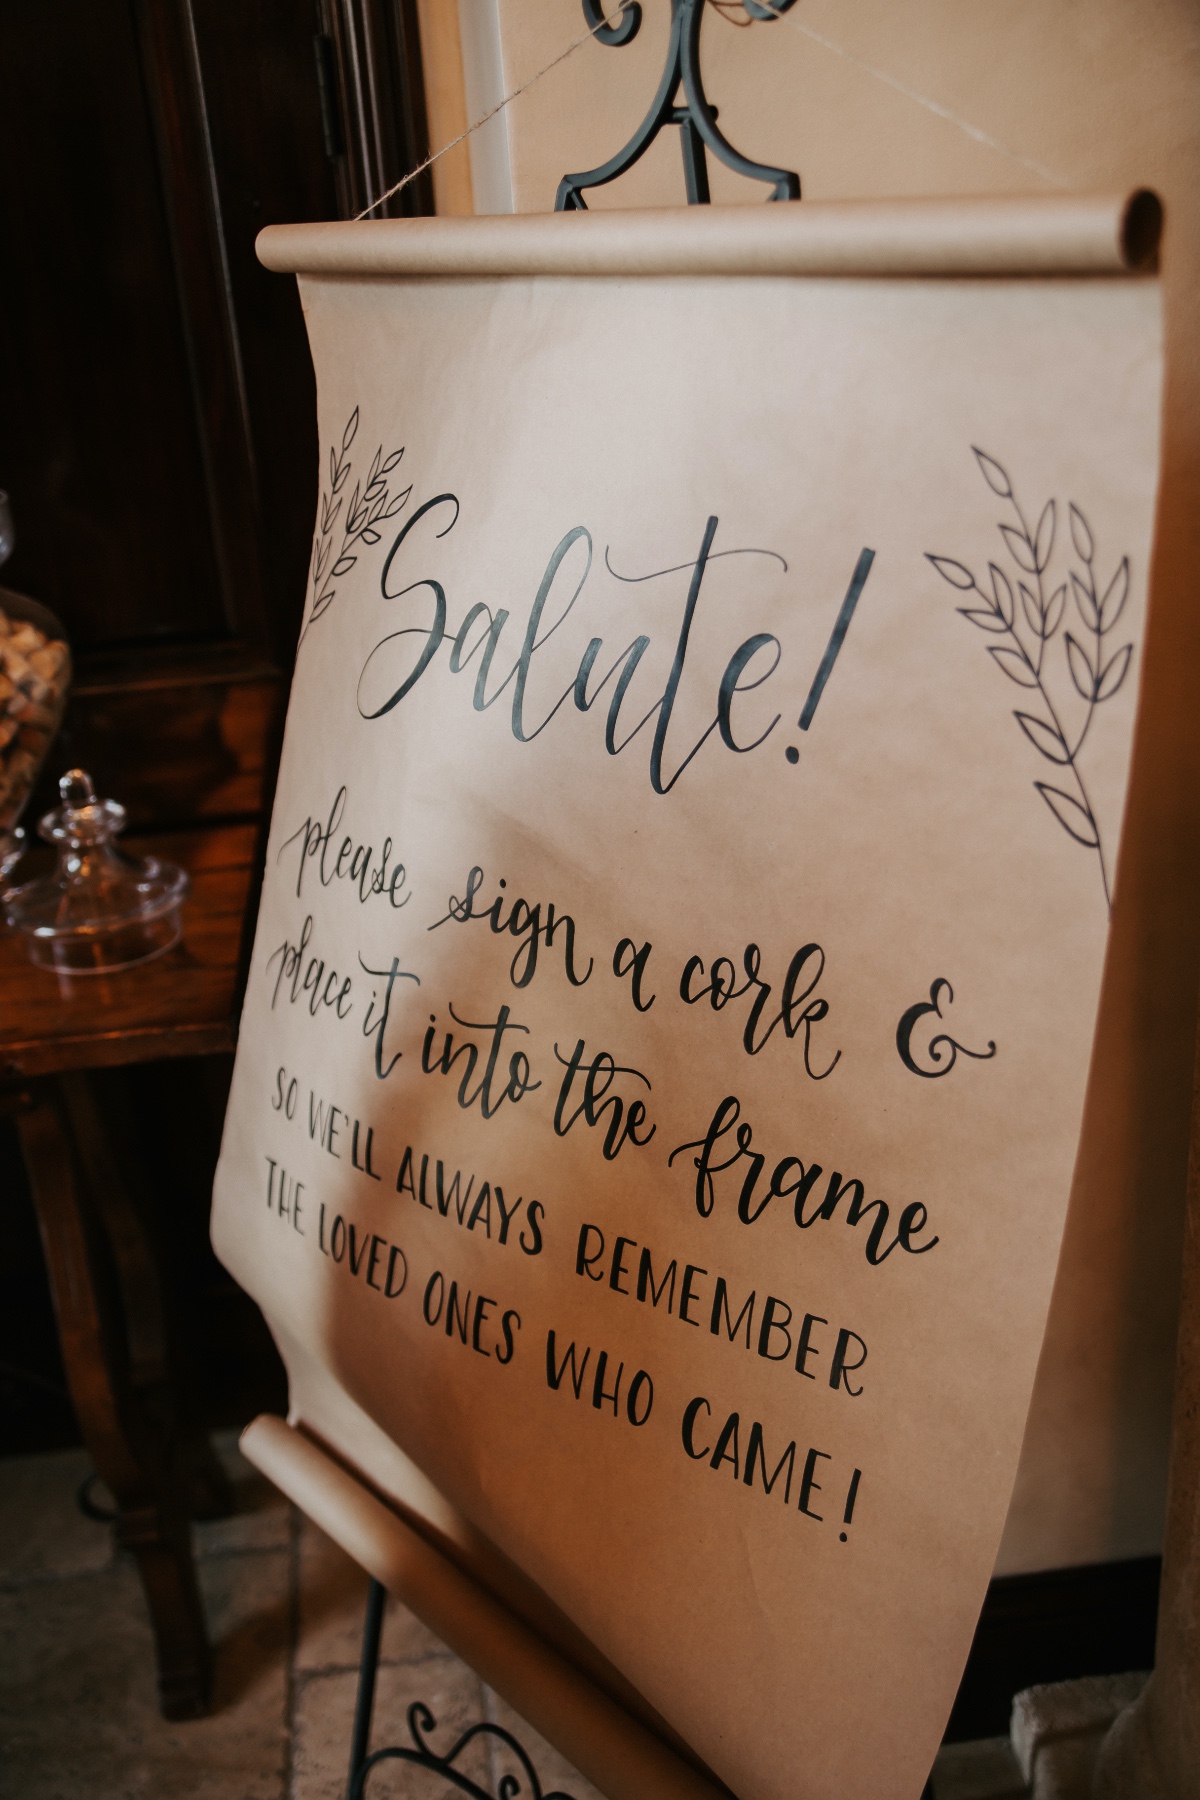 Salute!
please sign a cork &
place it into the frame
SO WE'LL ALWAYS REMEMBER
THE LOVED ONES WHO CAME!